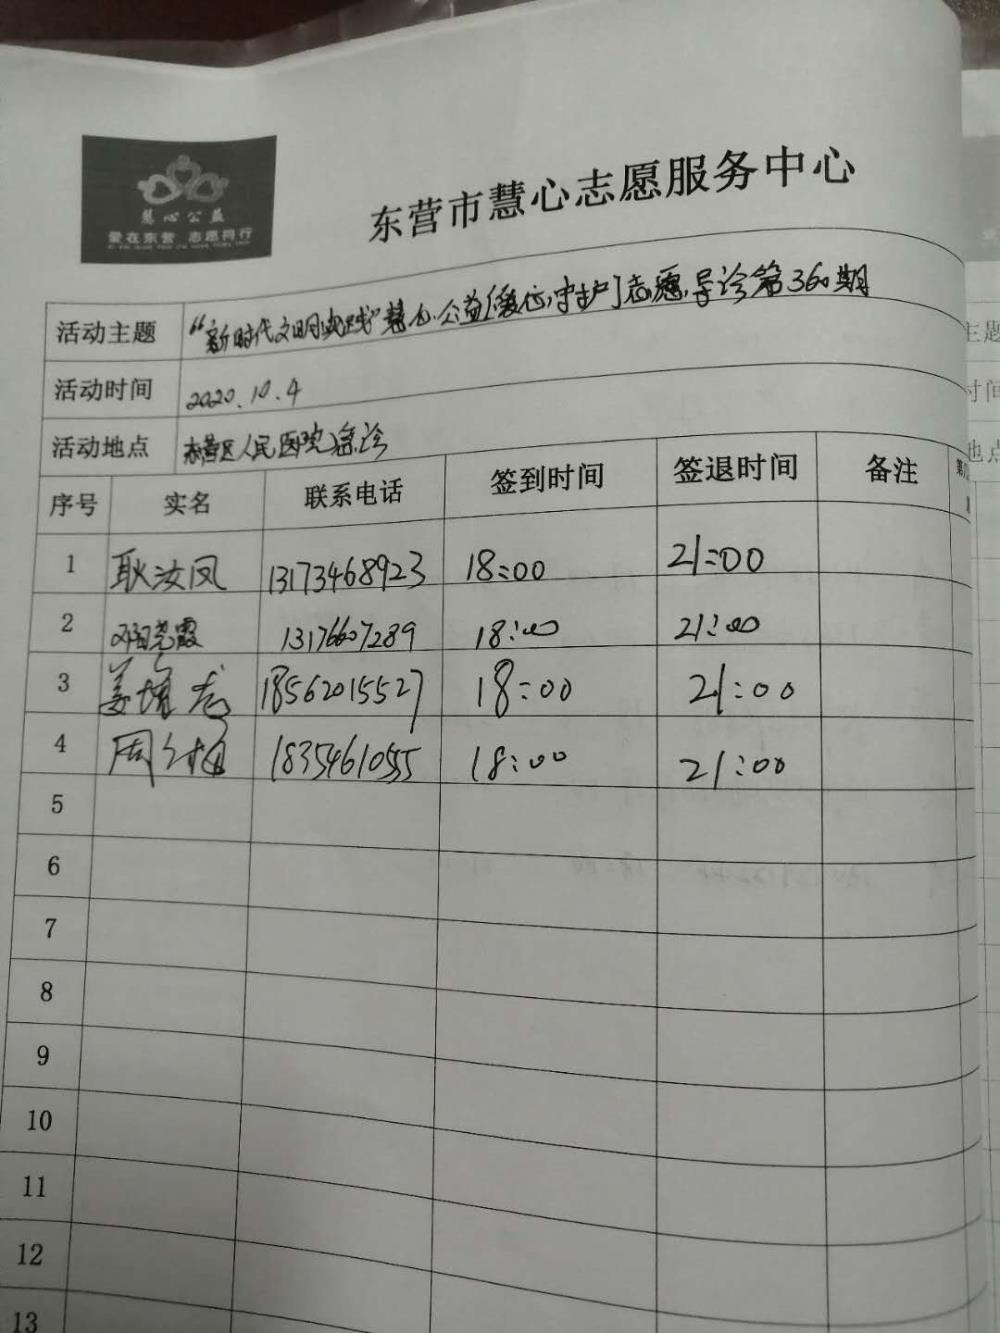 慧心公益
爱在东营 志愿同行
东营市慧心志愿服务中心
活动主题 “新时代文明实践”慧心公益 守护 志愿导诊第360期
活动时间 2020.10.4
活动地点 东营区人民医院急诊
序号 实名 联系电话 签到时间 签退时间 备注
1 耿汝凤 13173468923 18:00 21:00
2 霞 13176607289 18:00 21:00
3 姜 18562015527 18:00 21:00
4 周 1835461055 18:00 21:00
5
6
7
8
9
10
11
12
13
主题
时间
地点